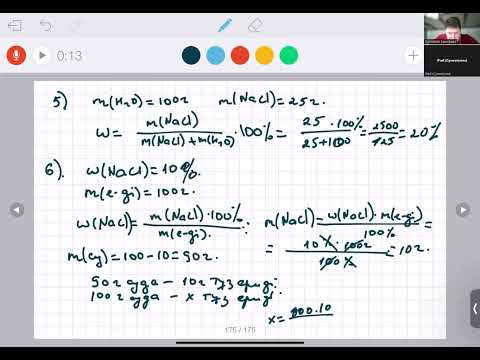 0:13
5) m(H₂O)=100г m(NaCl)=25г.
W= m(NaCl) / m(NaCl)+m(H₂O) ·100%= 25·100% / 25+100 = 2500/125 =20%
6) W(NaCl)=10%.
m(е-gi)=100г.
W(NaCl)= m(NaCl)·100% / m(е-gi).
m(NaCl)= W(NaCl)·m(е-gi) / 100% =
= 10%·100г / 100% =10г.
m(су)=100-10=90г.
90г суда – 10г туз ериді.
100г суда – х туз ериді.
х= 100·10
175 / 175
iPad (Gymnasium)